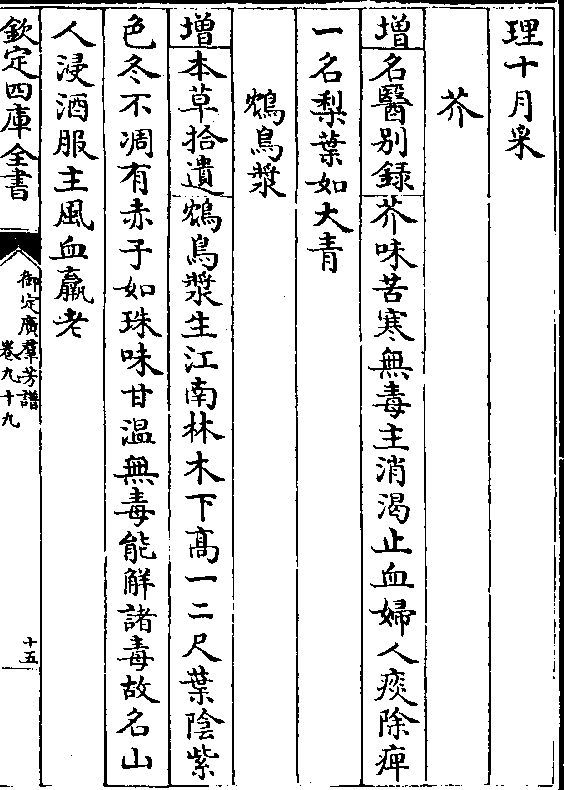 理十月采
芥
增名醫別錄芥味苦寒無毒主消渴止血婦人痰除痺
一名梨葉如大青
鴆鳥漿
增本草拾遺鴆鳥漿生江南林木下高一二尺葉陰紫
色冬不凋有赤子如珠味甘温無毒能解諸毒故名山
人浸酒服主風血羸老
欽定四庫全書
御定廣羣芳譜
卷九十九
十五